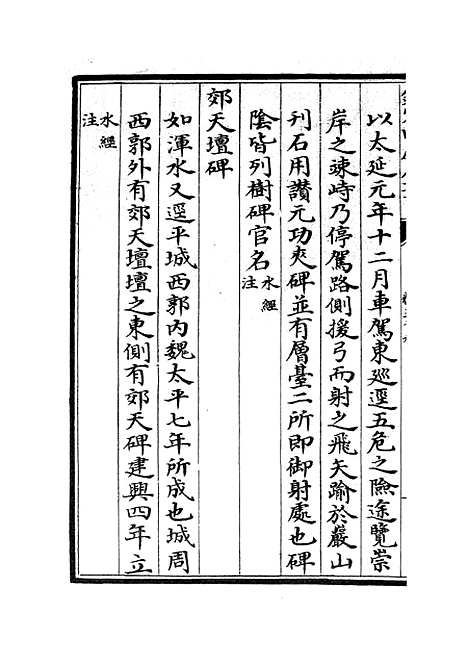 以太延元年十二月車駕東巡逕五危之險途覽崇
岸之竦峙乃停駕路側援弓而射之飛矢踰於巖山
刊石用讚元功夾碑並有層臺二所即御射處也碑
陰皆列樹碑官名水經注
郊天壇碑
如渾水又逕平城西郭內魏太平七年所成也城周
西郭外有郊天壇壇之東側有郊天碑建興四年立
水經注